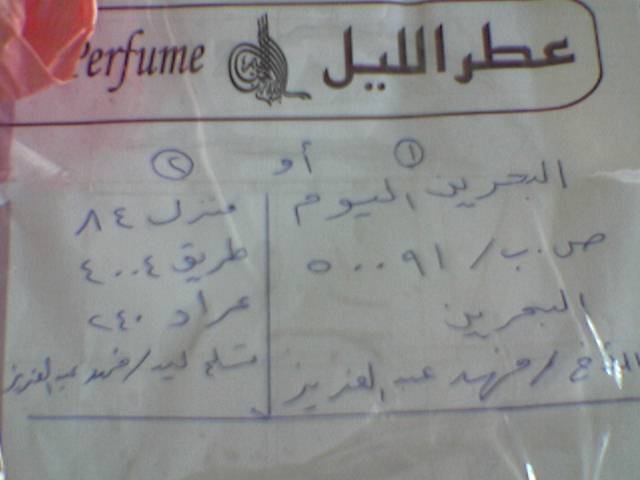 عطر الليل Perfume
١ أو ٢
البحرين اليوم
ص.ب/ ٥٠٠٩١
البحرين
الأخ / فهد عبد العزيز
منزل ٨٤
طريق ٤٠٠٤
عراد ٢٤٠
تسلم ليد/ فهد عبد العزيز